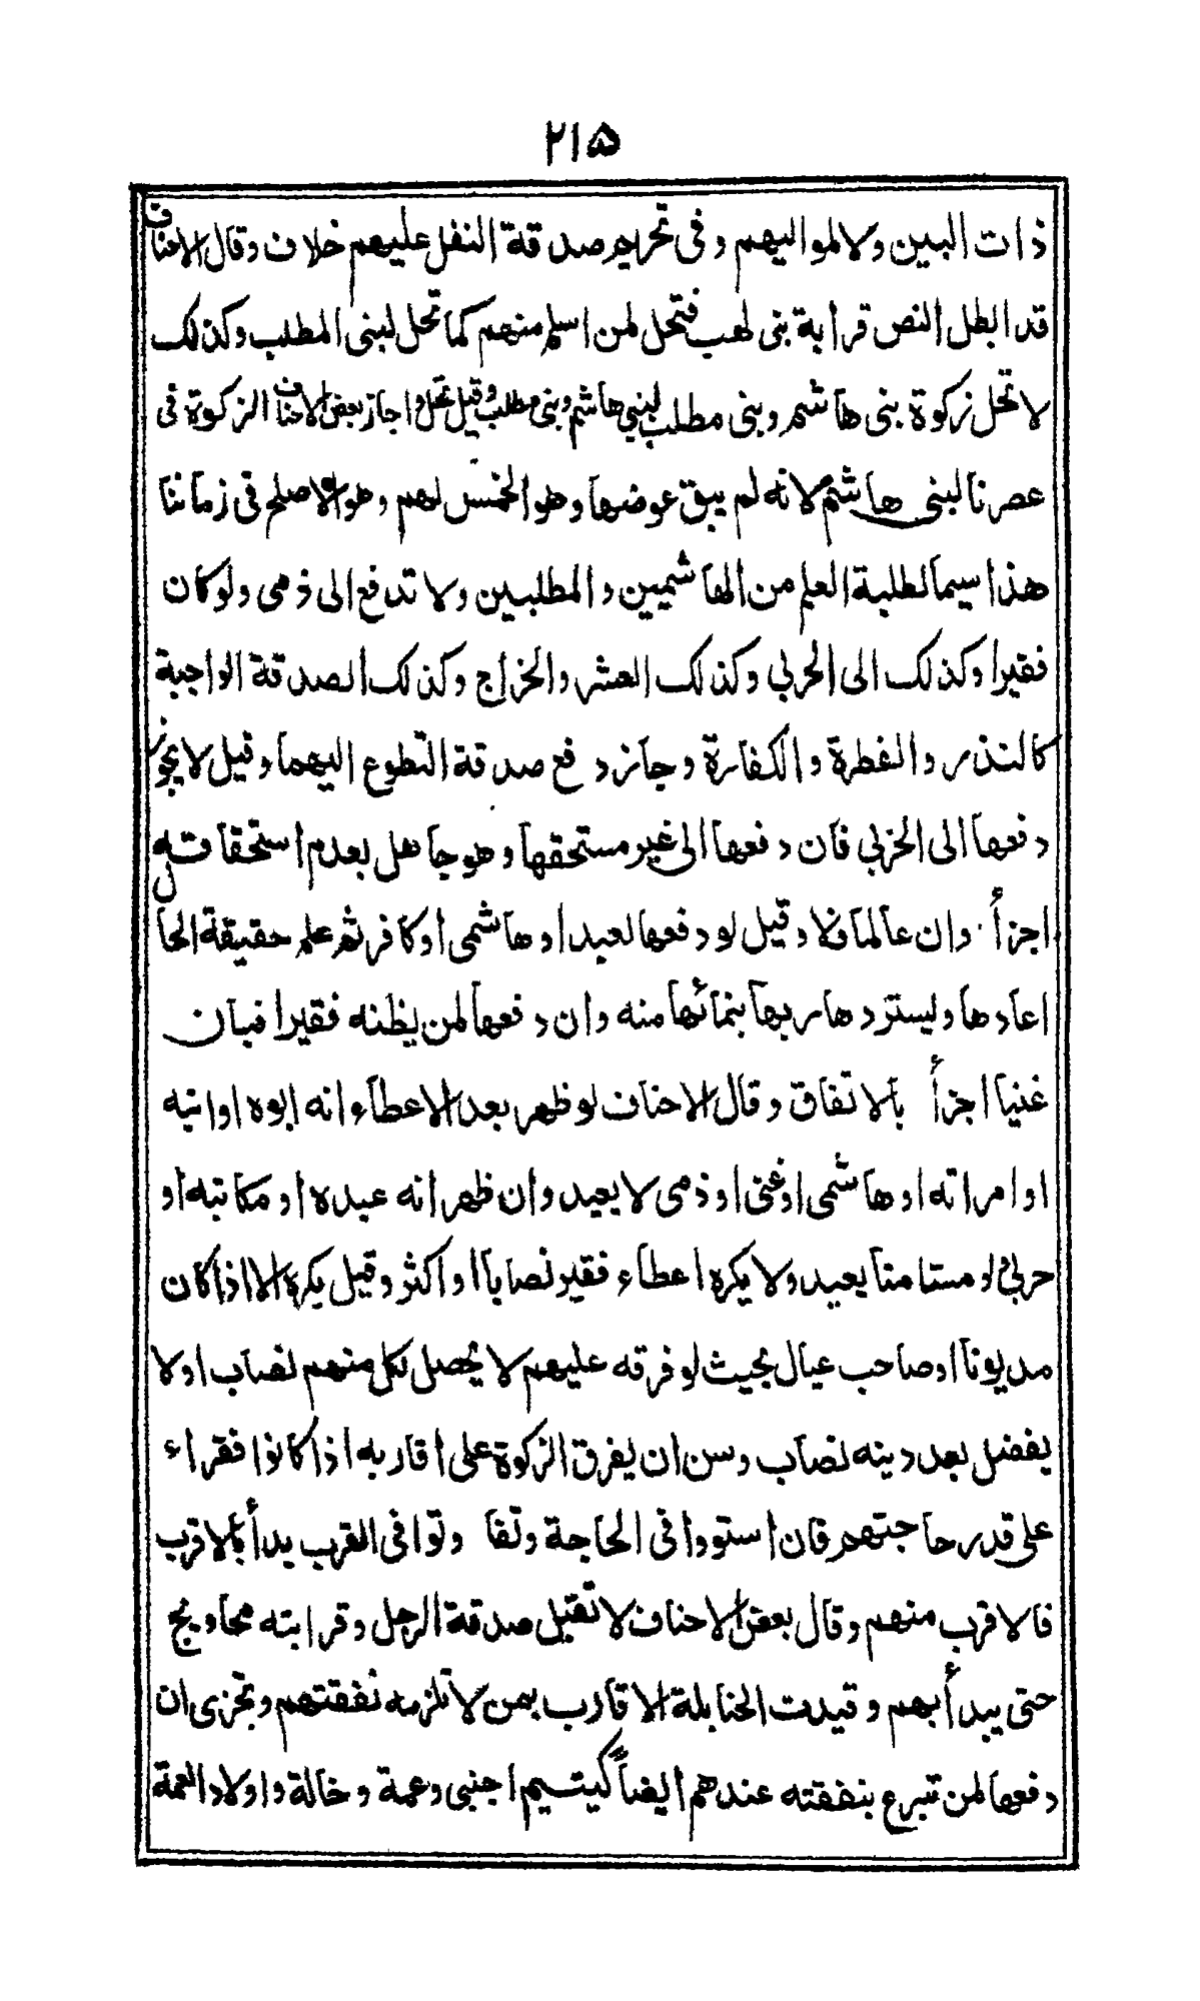 ٢١٥
ذات البين ولا لمواليهم وفى تحريم صدقة النفل عليهم خلاف وقال الاحناف
قد ابطل النص قرابة بنى لهب فتحل لمن اسلم منهم كما تحل لبنى المطلب وكذلك
لا تحل زكوة بنى هاشم وبنى مطلب لبني هاشم وبنى مطلب وقيل تحل واجاز بعض الاحناف الزكوة فى
عصرنا لبنى هاشم لانه لم يبق عوضها وهو الخمس لهم وهو الاصلح فى زماننا
هذا سيما لطلبة العلم من الهاشميين والمطلبين ولا تدفع الى ذمى ولو كان
فقيرا وكذلك الى الحربي وكذلك العشر والخراج وكذلك الصدقة الواجبة
كالنذر والفطرة والكفارة وجاز دفع صدقة التطوع اليهما وقيل لا يجوز
دفعها الى الحربي فان دفعها الى غير مستحقها وهو جاهل بعدم استحقاقه
اجزأ وان عالما فلا وقيل لو دفعها لعبد او هاشمى او كافر ثم علم حقيقة الحال
اعادها وليسترد هاربها بنمائها منه وان دفعها لمن يظنه فقيرا فبان
غنيا اجزأ بالاتفاق وقال الاحناف لو ظهر بعد الاعطاء انه ابوه او ابنه
او امراته او هاشمى او غنى او ذمى لا يعيد وان ظهر انه عبده او مكاتبه او
حربي او مستامنا يعيد ولا يكره اعطاء فقير نصابا او اكثر وقيل يكره الا اذا كان
مديونا او صاحب عيال بحيث لو فرقه عليهم لا يحصل لكل منهم نصاب او لا
يفضل بعد دينه نصاب وسن ان يفرق الزكوة على اقاربه اذا كانوا فقراء
على قدر حاجتهم فان استووا فى الحاجة وتفا وتوا فى القرب يدأ بالاقرب
فالاقرب منهم وقال بعض الاحناف لا تقبل صدقة الرجل وقرابته محاويج
حتى يبدأ بهم وقيدت الحنابلة الاقارب بمن لا تلزمه نفقتهم وتجزى ان
دفعها لمن تبرع بنفقته عندهم ايضاً كيتيم اجنبى وعمة وخالة واولاد العمة